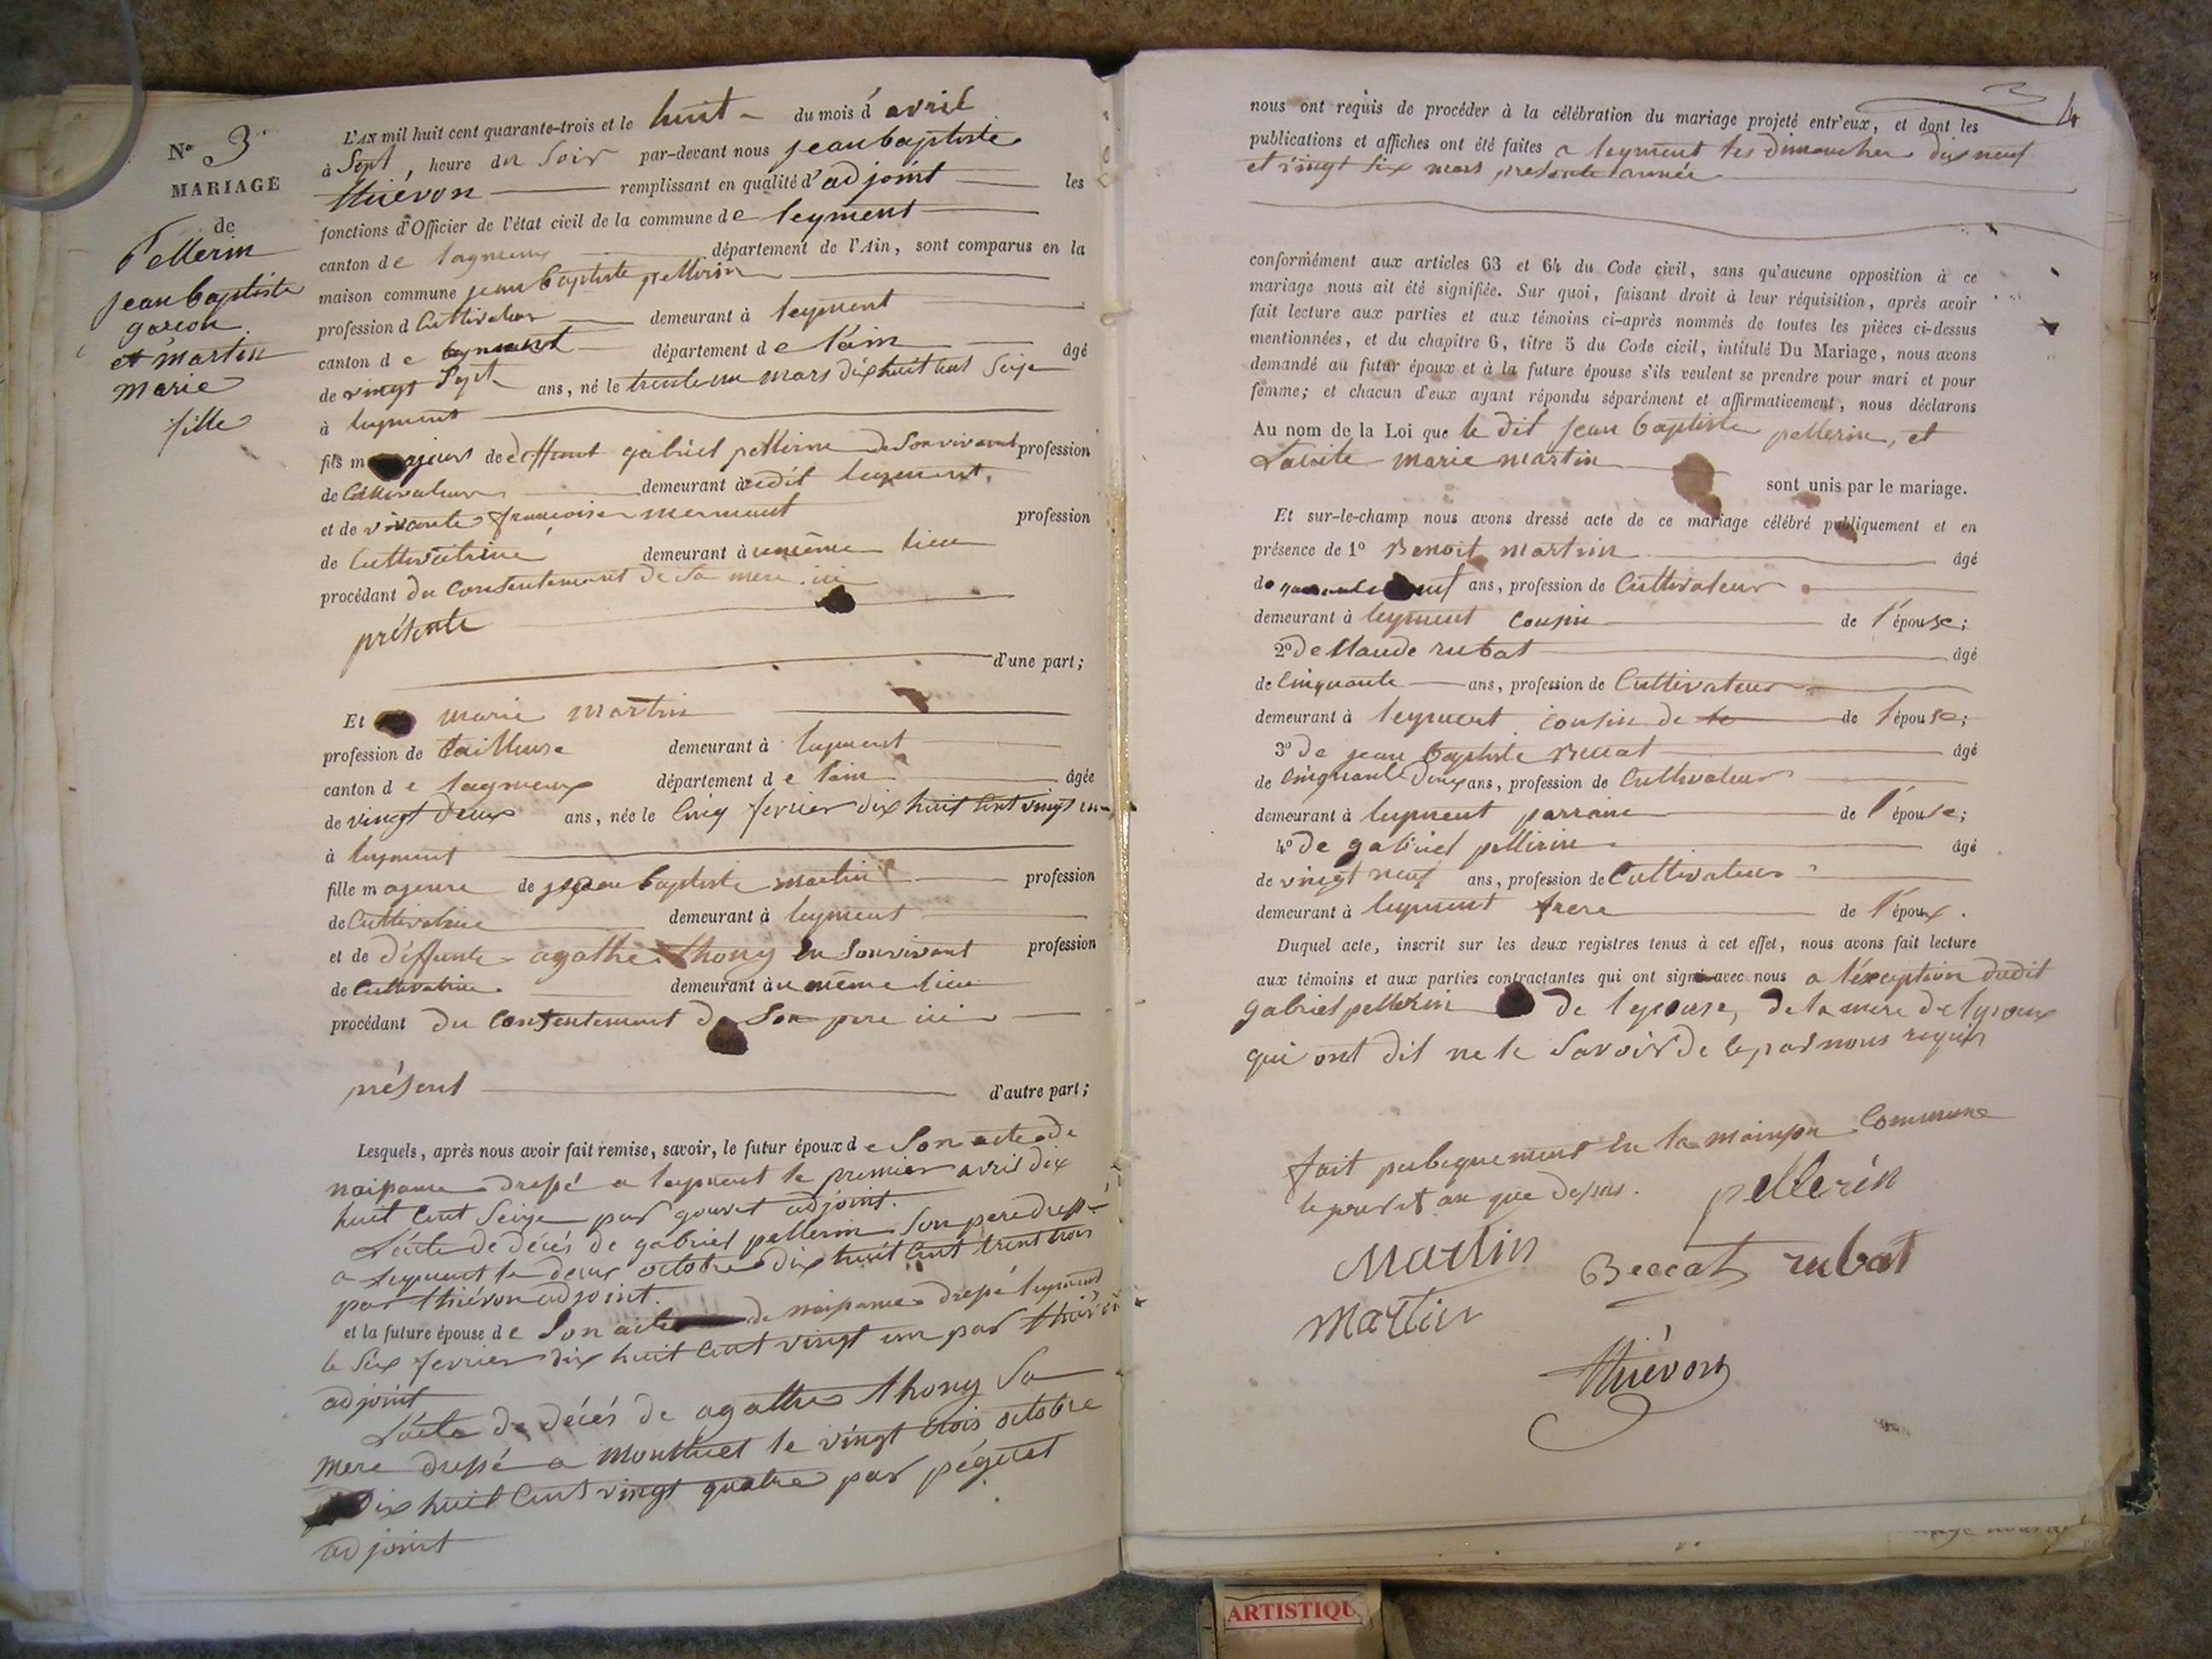 N° 3
MARIAGE
de
Pellerin
jean baptiste
garcon
et martin
marie
fille
L'AN mil huit cent quarante-trois et le huit du mois d'avril
à Sept heure du Soir par-devant nous jean baptiste
thiévon remplissant en qualité d'adjoint les
fonctions d'Officier de l'état civil de la commune de leyment
canton de lagnieux département de l'Ain, sont comparus en la
maison commune jean baptiste pellerin
profession d Cultivateur demeurant à leyment
canton d e département d e l'ain âgé
de vingt Sept ans, né le trente un mars dix huit cent Seize
à leyment
fils majeur de deffunt gabriel pellerin de Son vivant profession
de Cultivateur demeurant à udit leyment
et de vivante francoise mermant profession
de Cultivatrice demeurant à u même lieu
procédant du Consentement de Sa mere ici
présente
d'une part;
Et marie martin
profession de tailleuse demeurant à leyment
canton d e lagnieux département d e l'ain âgée
de vingt deux ans, née le Cinq fevrier dix huit Cent vingt un
à leyment
fille majeure de jean baptiste martin profession
de Cultivateur demeurant à leyment
et de déffunte agathe thony en Son vivant profession
de Cultivatrice demeurant à u même lieu
procédant du Consentement de Son pere ici
présent d'autre part;
Lesquels, après nous avoir fait remise, savoir, le futur époux d e Son acte de
naissance dressé a leyment le premier avril dix
huit Cent Seize par gouvet adjoint.
L'acte de décés de gabriel pellerin Son pere dressé
a leyment le deux octobre dix huit Cent trent trois
par thiévon adjoint.
et la future épouse d e Son acte de naissance dressé leyment
le Six fevrier dix huit Cent vingt un par thiévon
adjoint
L'acte de décés de agathe thony Sa
mere dressé a Montluel le vingt trois octobre
Dix huit Cent vingt quatre par pégout
adjoint
4
nous ont requis de procéder à la célébration du mariage projeté entr'eux, et dont les
publications et affiches ont été faites a leyment les Dimanches dix neuf
et vingt Six mars presente année
conformément aux articles 63 et 64 du Code civil, sans qu'aucune opposition à ce
mariage nous ait été signifiée. Sur quoi, faisant droit à leur réquisition, après avoir
fait lecture aux parties et aux témoins ci-après nommés de toutes les pièces ci-dessus
mentionnées, et du chapitre 6, titre 5 du Code civil, intitulé Du Mariage, nous avons
demandé au futur époux et à la future épouse s'ils veulent se prendre pour mari et pour
femme; et chacun d'eux ayant répondu séparément et affirmativement, nous déclarons
Au nom de la Loi que le dit jean baptiste pellerin, et
Ladite marie martin
sont unis par le mariage.
Et sur-le-champ nous avons dressé acte de ce mariage célébré publiquement et en
présence de 1° Benoit martin âgé
de quarante neuf ans, profession de Cultivateur
demeurant à leyment cousin de l'épouse;
2° de Claude rubat âgé
de Cinquante ans, profession de Cultivateur
demeurant à leyment cousin de de l'épouse;
3° de jean baptiste Beccat âgé
de Cinquante Deux ans, profession de Cultivateur
demeurant à leyment parrain de l'épouse;
4° de gabriel pellerin âgé
de vingt neuf ans, profession de Cultivateur
demeurant à leyment frere de l'époux.
Duquel acte, inscrit sur les deux registres tenus à cet effet, nous avons fait lecture
aux témoins et aux parties contractantes qui ont signé avec nous a l'éxception dudit
gabriel pellerin de l'epouse, de la mere de l'epoux
qui ont dit ne le Savoir de ce par nous requis
fait publiquement en la maison Commune
le jour et an que dessus. pellerin
Martin Beccat rubat
Martin
thiévon
ARTISTIQU